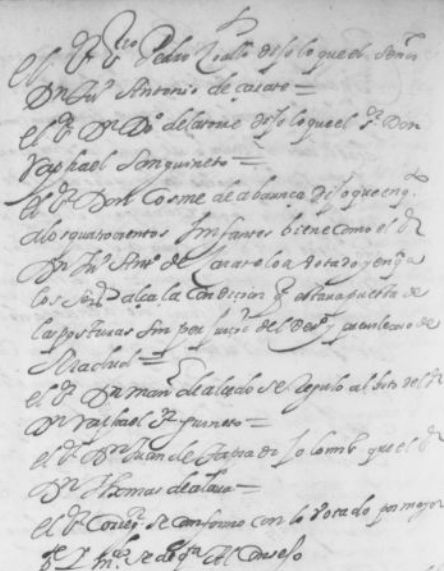 el Sr Pedro Coallo dijo lo que el Señor
Dn Juº Antonio de carate =
el Sr Dn Dº de la torre dijo lo que el Sr Don
Raphael Sanguineto =
el Sr Don Cosme de abaunca dijo que en qto
a los quatrocientos Infantes biene como el Sr
Dn Juº Antº de Carate lo a Votado y en qto a
los alça la Condicion qe estaua puesta de
las posturas sin perjuicio del Derº y preuilexio de
Madrid =
el Sr Dn Manl de alçedo se Regulo al boto del Sr
Dn Raphael Sanguineto =
el Sr Dn Juan de Tapia dijo lo que el Sr
Dn Thomas de alaua =
el Sr Correxr se conformo con lo Votado por mayor
pte y se de qta Al Consejo